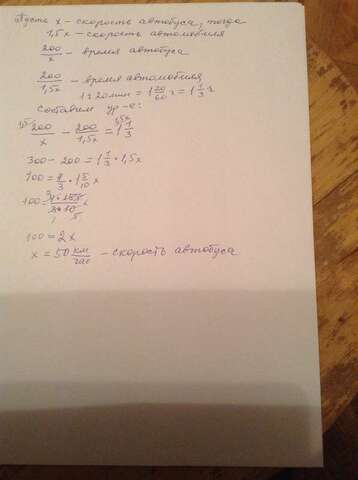 Пусть x - скорость автобуса, тогда
1,5x - скорость автомобиля
200/x - время автобуса
200/1,5x - время автомобиля
1 ч 20 мин = 1 20/60 ч = 1 1/3 ч
Составим ур-е:
200/x - 200/1,5x = 1 1/3
300 - 200 = 1 1/3 · 1,5x
100 = 4/3 · 1 5/10 x
100 =
100 = 2x
x = 50 км/час - скорость автобуса